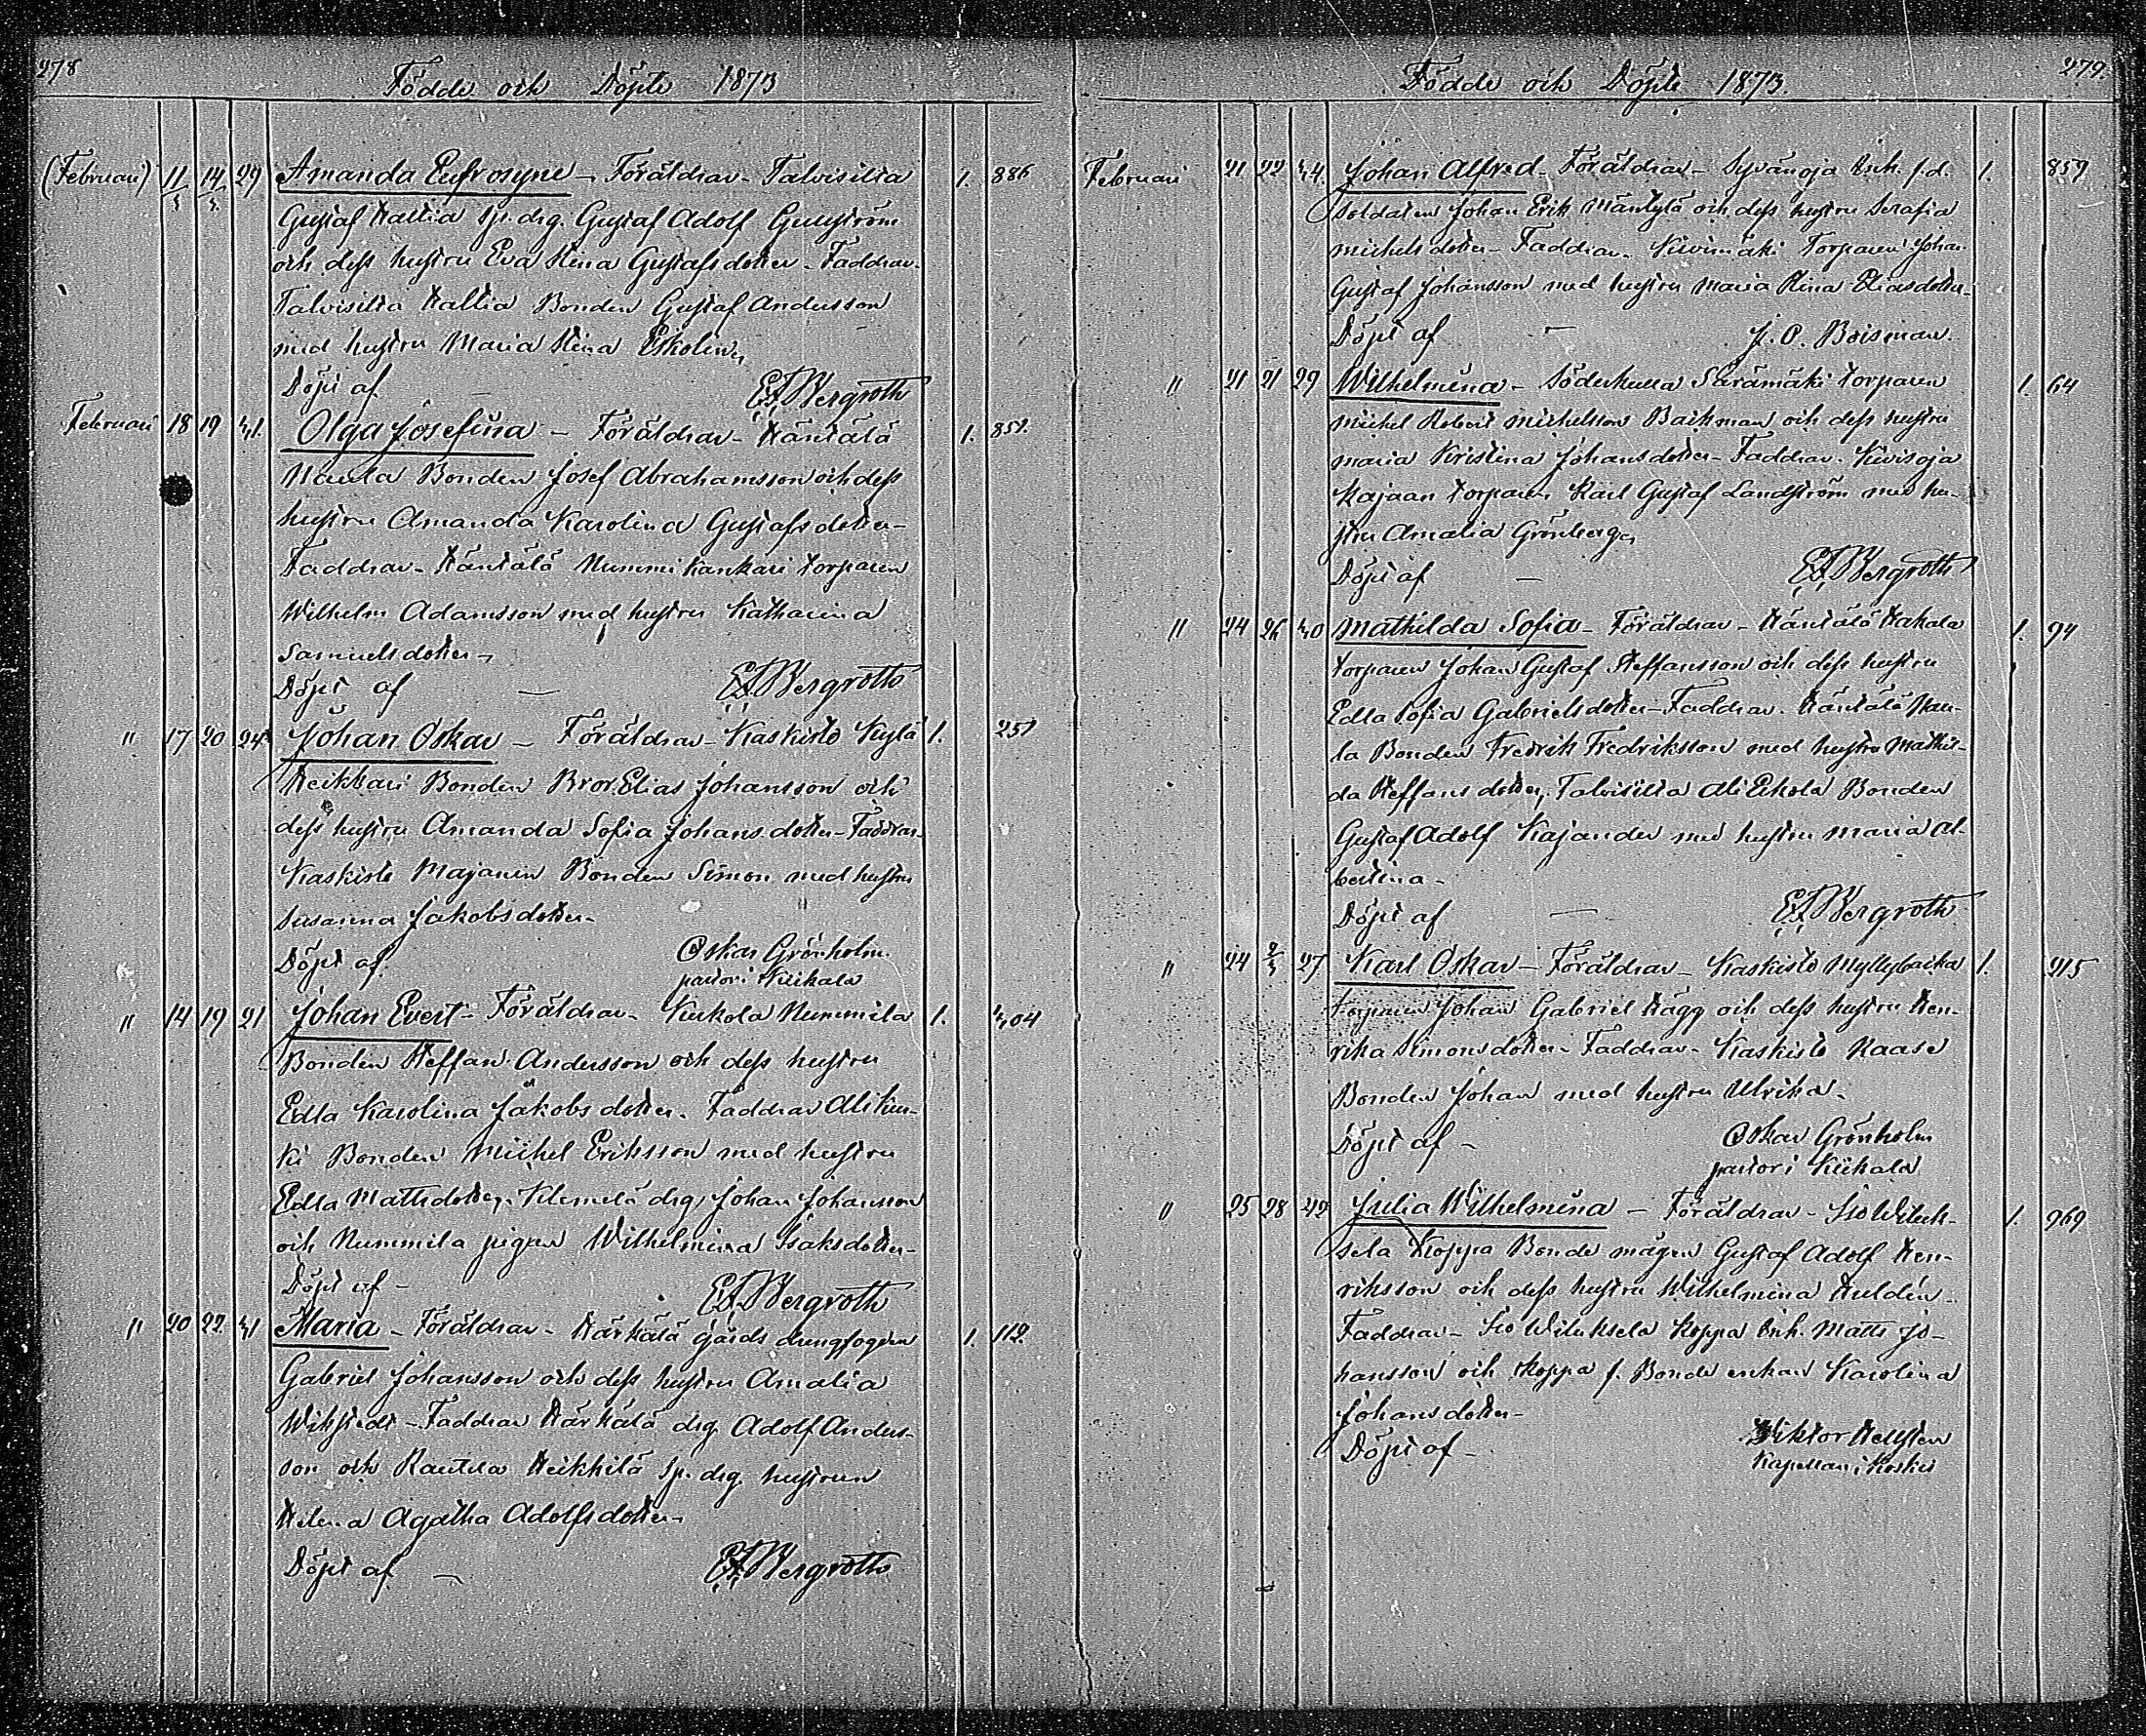 278
Födde och Döpte 1873
(Februari) 11/3 14/3 29 Amanda Eufrosyne - Föräldrar - Talvisilta 1. 886
Gustaf Hallia sp. drg. Gustaf Adolf Gullström
och dess hustru Eva Stina Gustafsdotter - Faddrar -
Talvisilta Hallia Bonden Gustaf Andersson
med hustru Maria Stina Eskolin
Döpt af - E.F. Bergroth
Februari 18 19 41. Olga Josefina - Föräldrar - Häntälä 1. 851.
Naula Bonden Josef Abrahamsson och dess
hustru Amanda Karolina Gustafsdotter -
Faddrar - Häntälä Nummi Kankari torparen
Wilhelm Adamsson med hustru Katharina
Samuelsdotter -
Döpt af - E.F. Bergroth
" 17 20 24 Johan Oskar - Föräldrar - Kaskisto Kylä 1. 251
Heikkari Bonden Bror Elias Johansson och
dess hustru Amanda Sofia Johansdotter - Faddrar -
Kaskisto Majanen Bonden Simon med hustru
Susanna Jakobsdotter -
Döpt af Oskar Grönholm.
pastor i Kiikala
" 14 19 21 Johan Evert - Föräldrar - Kurkola Nummila 1. 404
Bonden Steffan Andersson och dess hustru
Edla Karolina Jakobsdotter. Faddrar Ali Kur-
ki Bonden Mickel Eriksson med hustru
Edla Mattsdotter, Klemelä drg. Johan Johansson
och Nummila pigan Wilhelmina Isaksdotter -
Döpt af - E.F. Bergroth
" 20 22 41 Maria - Föräldrar - Härkälä gårds drengfogden 1. 112.
Gabriel Johansson och dess hustru Amalia
Wikstedt - Faddrar Härkälä drg. Adolf Anders-
son och Rautela Heikkilä sp. drg. hustrun
Helena Agatha Adolfsdotter -
Döpt af - E.F. Bergroth
279.
Födde och Döpte 1873.
Februari 21 22 44 Johan Alfred - Föräldrar - Syvänoja Enk. f.d. 1. 859
soldaten Johan Erik Mäntylä och dess hustru Serafia
Michelsdotter - Faddrar - Kivimäki Torparen Johan
Gustaf Johansson med hustru Maria Stina Eliasdotter -
Döpt af - J. O. Boisman.
" 21 21 29 Wilhelmina - Söderkulla Särämäki torparen 1. 64
Michel Robert Michelsson Backman och dess hustru
Maria Kristina Johansdotter - Faddrar - Kivisoja
Kajaan torparen Karl Gustaf Landström med hu-
stru Amalia Grönberg
Döpt af - E.F. Bergroth
" 24 26 40 Mathilda Sofia - Föräldrar - Häntälä Hakala 1. 94
torparen Johan Gustaf Steffansson och dess hustru
Edla Sofia Gabrielsdotter - Faddrar. Häntälä Nau-
la Bonden Fredrik Fredriksson med hustru Mathil-
da Steffansdotter, Talvisilta Ali Eskola Bonden
Gustaf Adolf Kajander med hustru Maria Al-
bertina -
Döpt af - E.F. Bergroth
" 24 2/3 27 Karl Oskar - Föräldrar - Kaskisto Myllybacka 1. 215
torparen Johan Gabriel Hägg och dess hustru Hen-
rika Simonsdotter - Faddrar - Kaskisto Naase
Bonden Johan med hustru Ulrika.
Döpt af - Oskar Grönholm
pastor i Kiikala
" 25 28 42 Julia Wilhelmina - Föräldrar - Iso Wiluk- 1. 969
sela Hoppa Bonde mågen Gustaf Adolf Hen-
riksson och dess hustru Wilhelmina Huldén -
Faddrar - Iso Wiluksela Hoppa Enk. Matts Jo-
hansson och Hoppa f. Bonde enkan Karolina
Johansdotter -
Döpt af - Wiktor Hellsten
Kapellan i Koskis